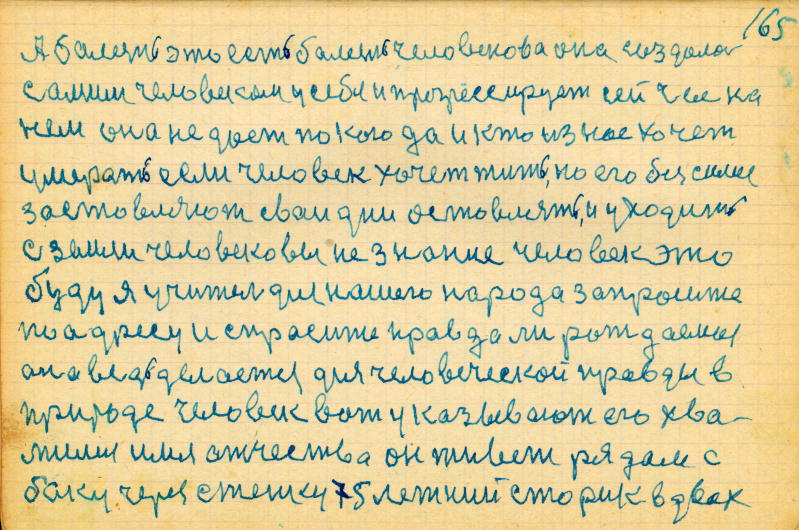 165
А балеть это есть балеть человекова она создала
самим человеком у себя и прогрессирует сей час на
нем она не дает покого да и кто из нас хочет
умерать если человек хочет жить, но его бессилие
заставляют сваи дни оставлять, и уходить
с земли человековы не знание человек это
буду я учител для нашего народа запросите
по адресу и спросите правда ли рождаемся
она ведь делается для человеческой правды в
природе человек вот указывают его хва-
милия имя отчества он живет рядам с
баку через стенку 75 летний старик в двох